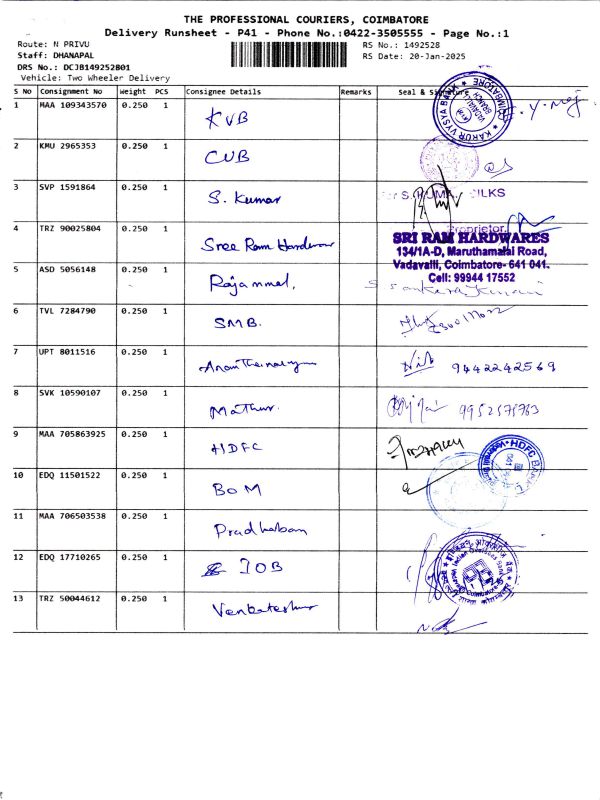 THE PROFESSIONAL COURIERS, COIMBATORE
Delivery Runsheet - P41 - Phone No.:0422-3505555 - Page No.:1
Route: N PRIVU RS No.: 1492528
Staff: DHANAPAL RS Date: 20-Jan-2025
DRS No.: DCJB149252801
Vehicle: Two Wheeler Delivery
S No Consignment No Weight PCS Consignee Details Remarks Seal & Signature
1 MAA 109343570 0.250 1 KVB
KARUR VYSYA BANK COIMBATORE
VADAVALLI BRANCH
2 KMU 2965353 0.250 1 CUB
3 SVP 1591864 0.250 1 S. Kumar
SILKS
Proprietor
4 TRZ 90025804 0.250 1 Sree Ram Hardwar
SRI RAM HARDWARES
134/1A-D, Maruthamalai Road,
Vadavalli, Coimbatore- 641 041.
Cell: 99944 17552
5 ASD 5056148 0.250 1 Rajammal,
6 TVL 7284790 0.250 1 SMB.
7 UPT 8011516 0.250 1 9442242569
8 SVK 10590107 0.250 1 Mathur.
9 MAA 705863925 0.250 1 HDFC
HDFC BANK
10 EDQ 11501522 0.250 1 BOM
11 MAA 706503538 0.250 1 Pradhaban
12 EDQ 17710265 0.250 1 IOB
Indian Overseas Bank
13 TRZ 50044612 0.250 1 Venkateshwar